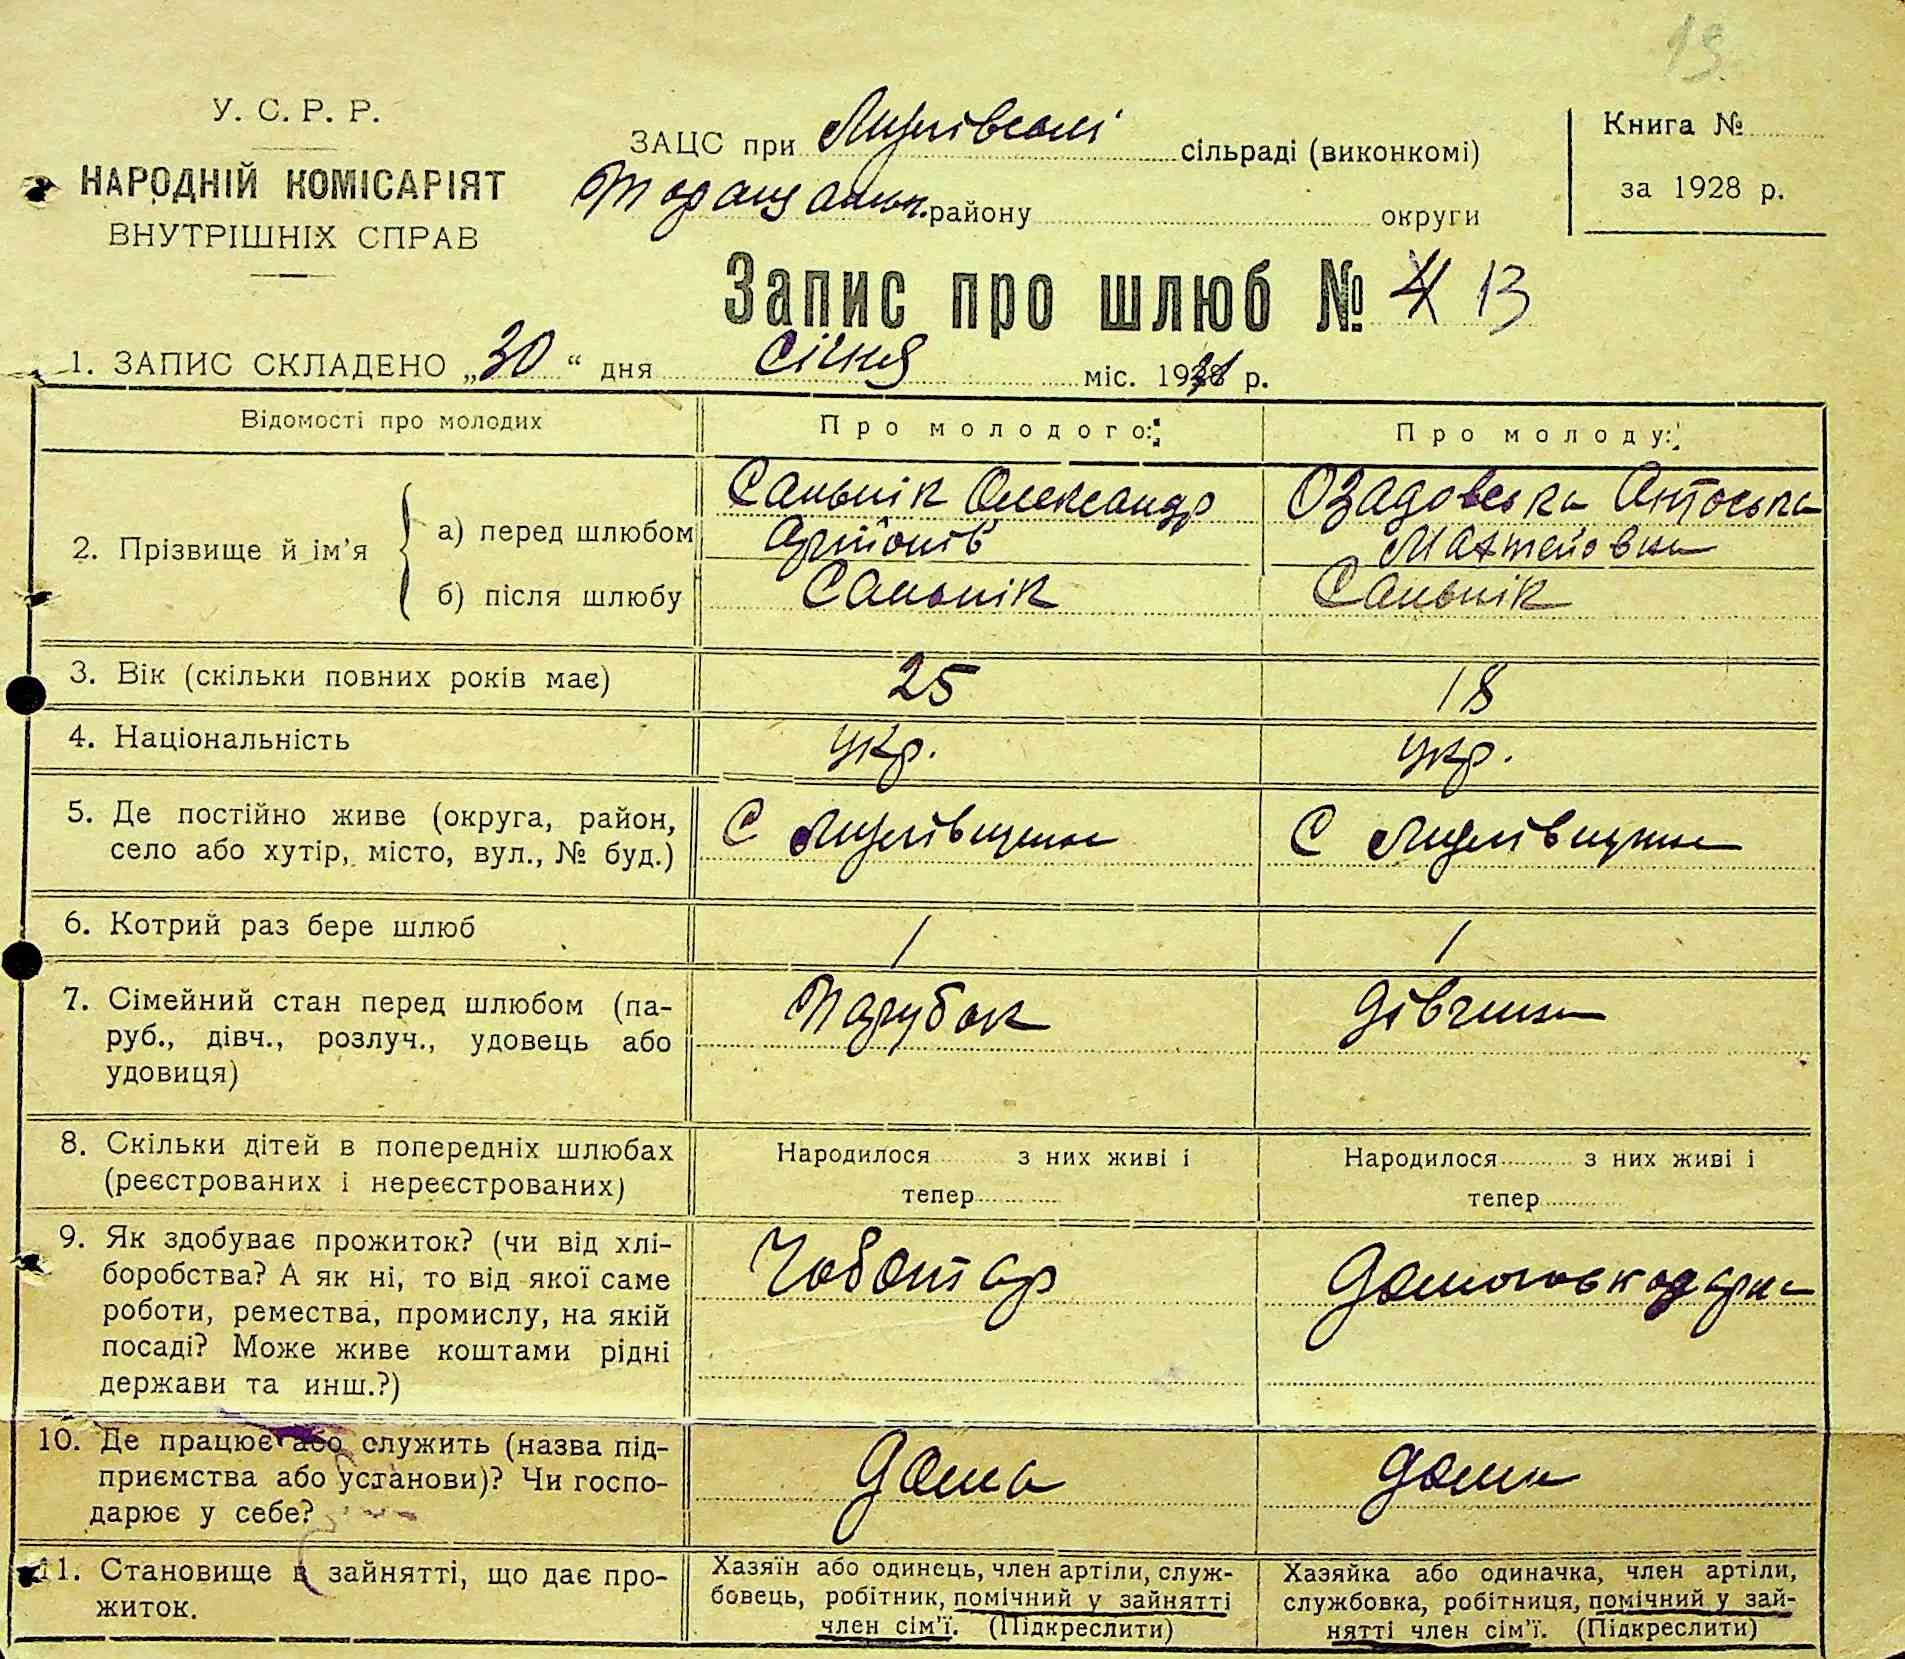 13
У. С. Р. Р.
НАРОДНІЙ КОМІСАРІЯТ
ВНУТРІШНІХ СПРАВ
ЗАЦС при сільраді (виконкомі)
району округи
Книга №
за 1928 р.
Запис про шлюб № 13
1. ЗАПИС СКЛАДЕНО „30“ дня Січня міс. 1931 р.
Відомості про молодих
Про молодого:
Про молоду:
2. Прізвище й ім'я
а) перед шлюбом
Саньнік Олександр
Озадовська Антоська
Матвійовна
б) після шлюбу
Саньнік
Саньнік
3. Вік (скільки повних років має)
25
18
4. Національність
укр.
укр.
5. Де постійно живе (округа, район,
село або хутір, місто, вул., № буд.)
С
С
6. Котрий раз бере шлюб
1
1
7. Сімейний стан перед шлюбом (па-
руб., дівч., розлуч., удовець або
удовиця)
Парубок
дівчина
8. Скільки дітей в попередніх шлюбах
(реєстрованих і нереєстрованих)
Народилося з них живі і
тепер
Народилося з них живі і
тепер
9. Як здобуває прожиток? (чи від хлі-
боробства? А як ні, то від якої саме
роботи, ремества, промислу, на якій
посаді? Може живе коштами рідні
держави та инш.?)
Чоботар
10. Де працює або служить (назва під-
приємства або установи)? Чи госпо-
дарює у себе?
дома
дома
11. Становище в зайнятті, що дає про-
житок.
Хазяїн або одинець, член артіли, служ-
бовець, робітник, помічний у зайнятті
член сім'ї. (Підкреслити)
Хазяйка або одиначка, член артіли,
службовка, робітниця, помічний у зай-
нятті член сім'ї. (Підкреслити)